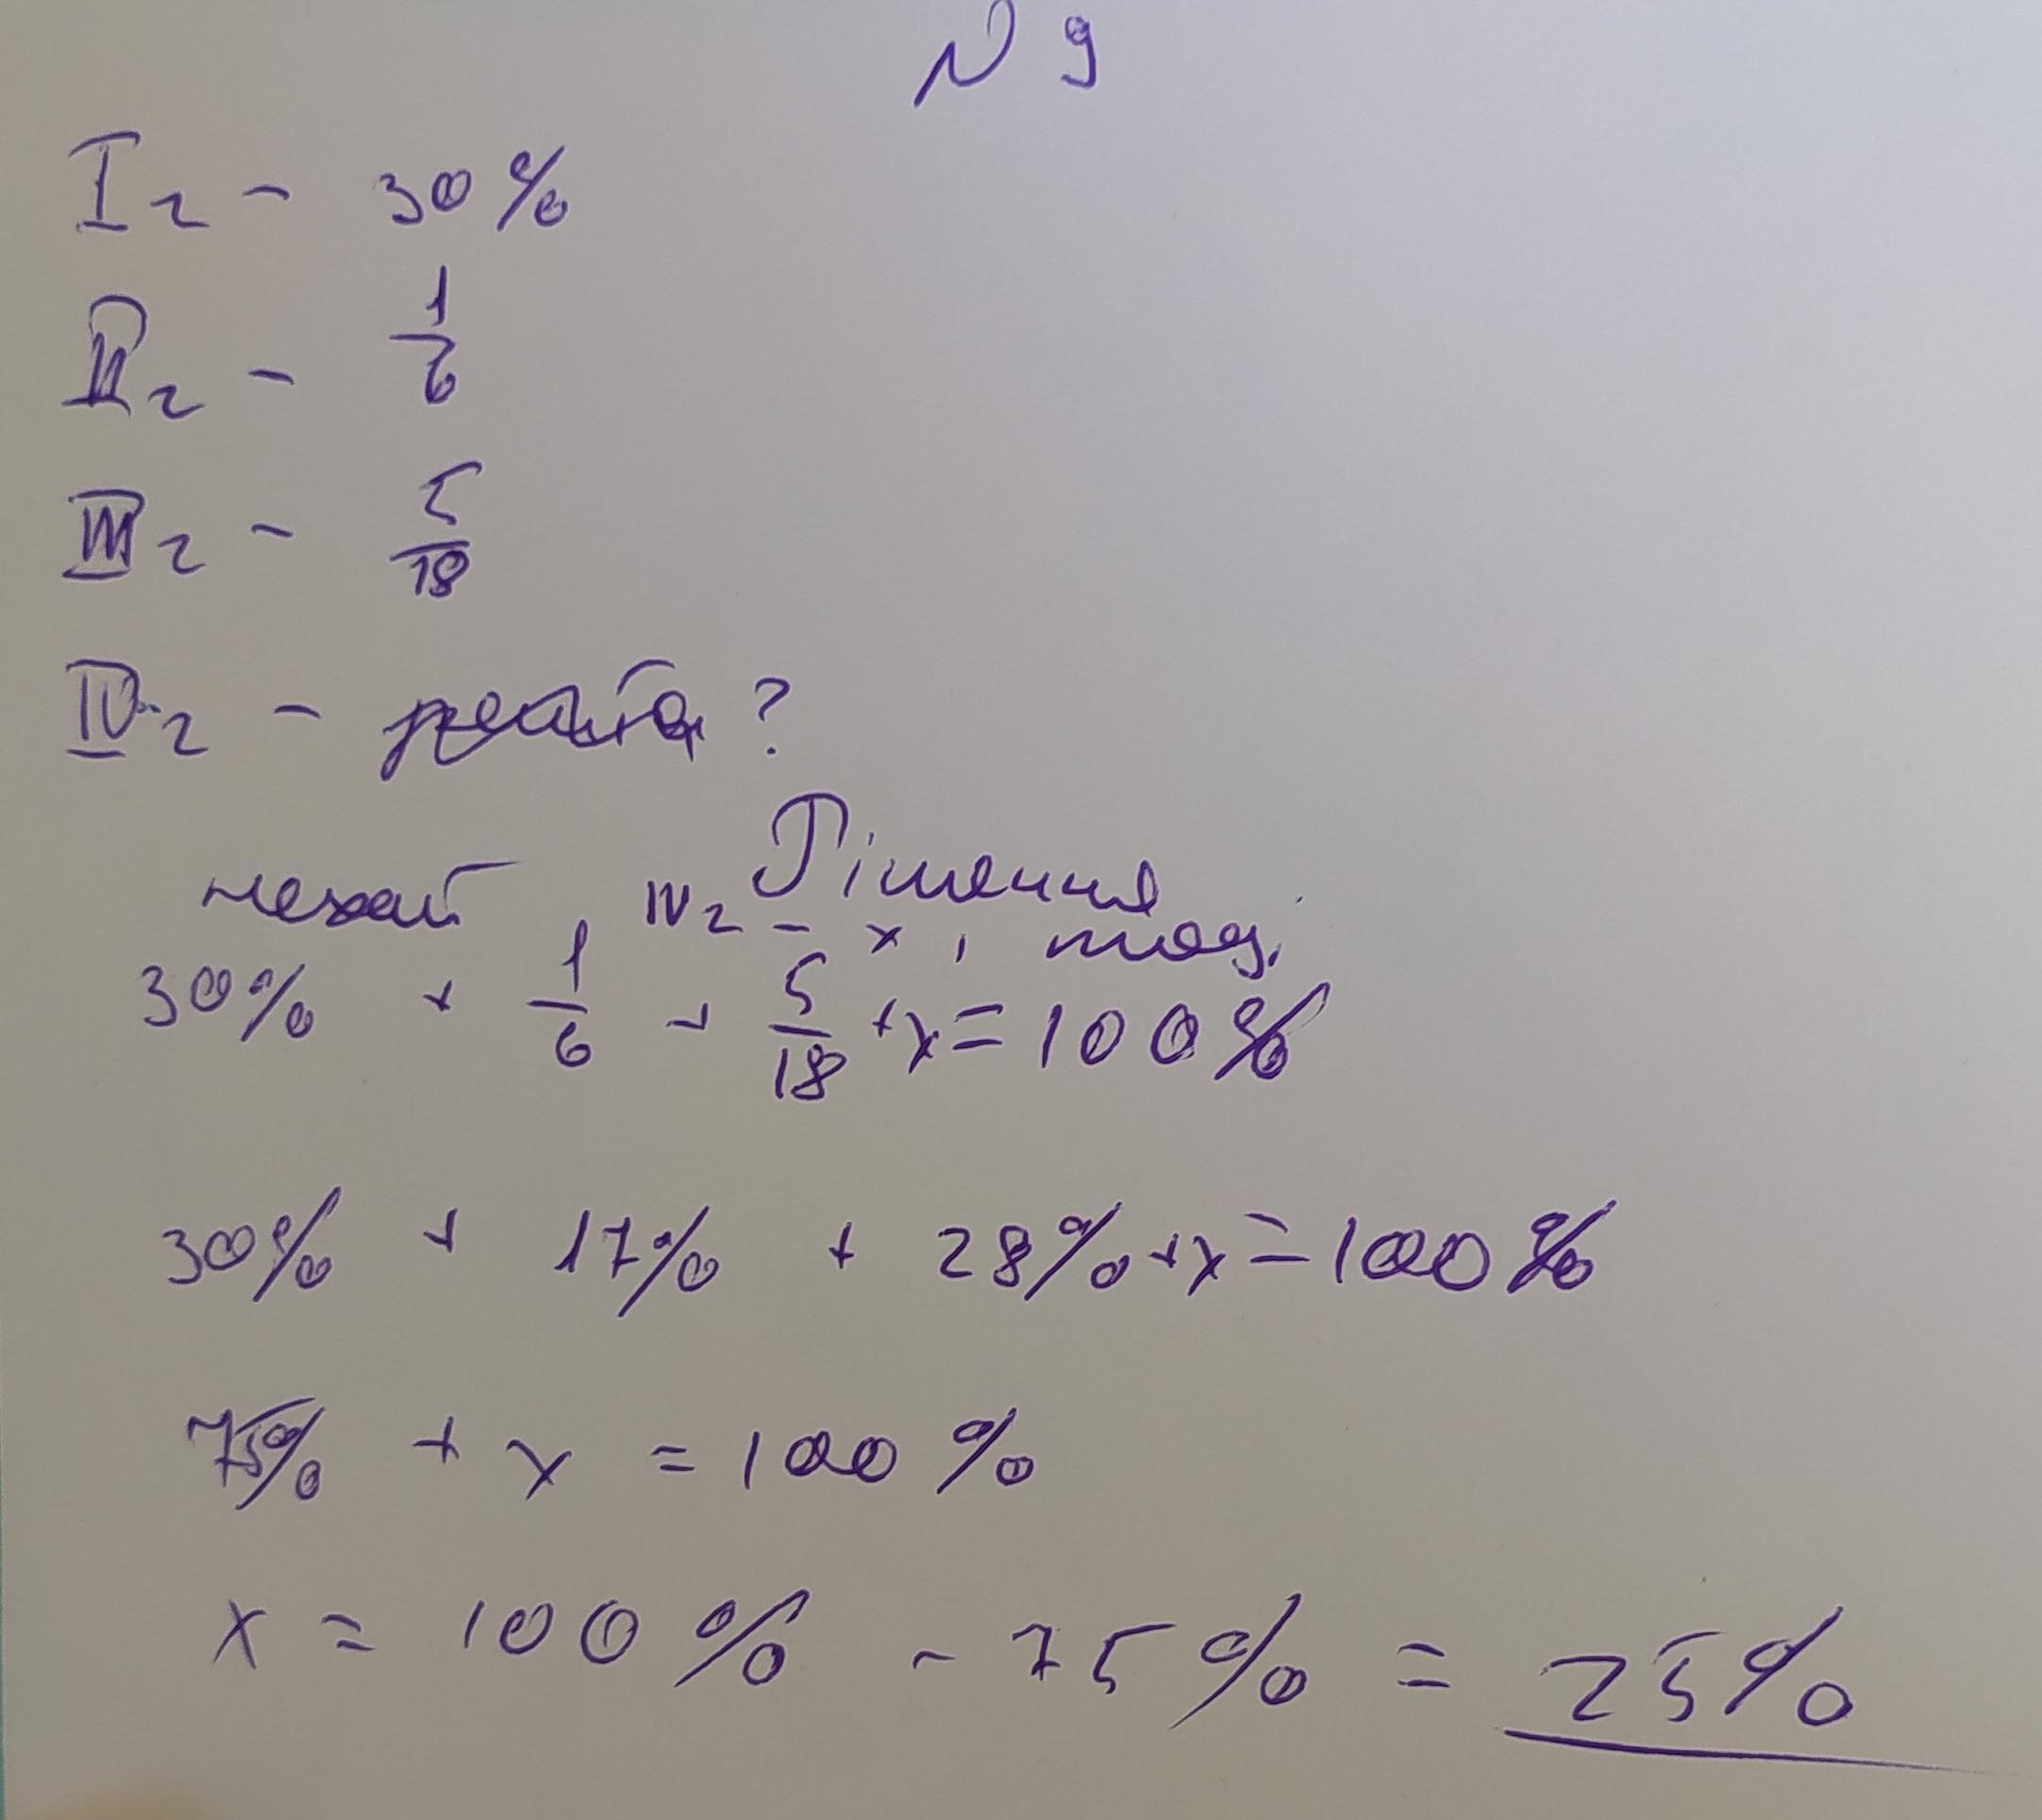 № 9
I г - 30%
II г - 1/6
III г - 5/18
IV г - решта ?
Рішення
нехай IV г - x, тоді
30% + 1/6 + 5/18 + x = 100%
30% + 17% + 28% + x = 100%
75% + x = 100%
x = 100% - 75% = 25%